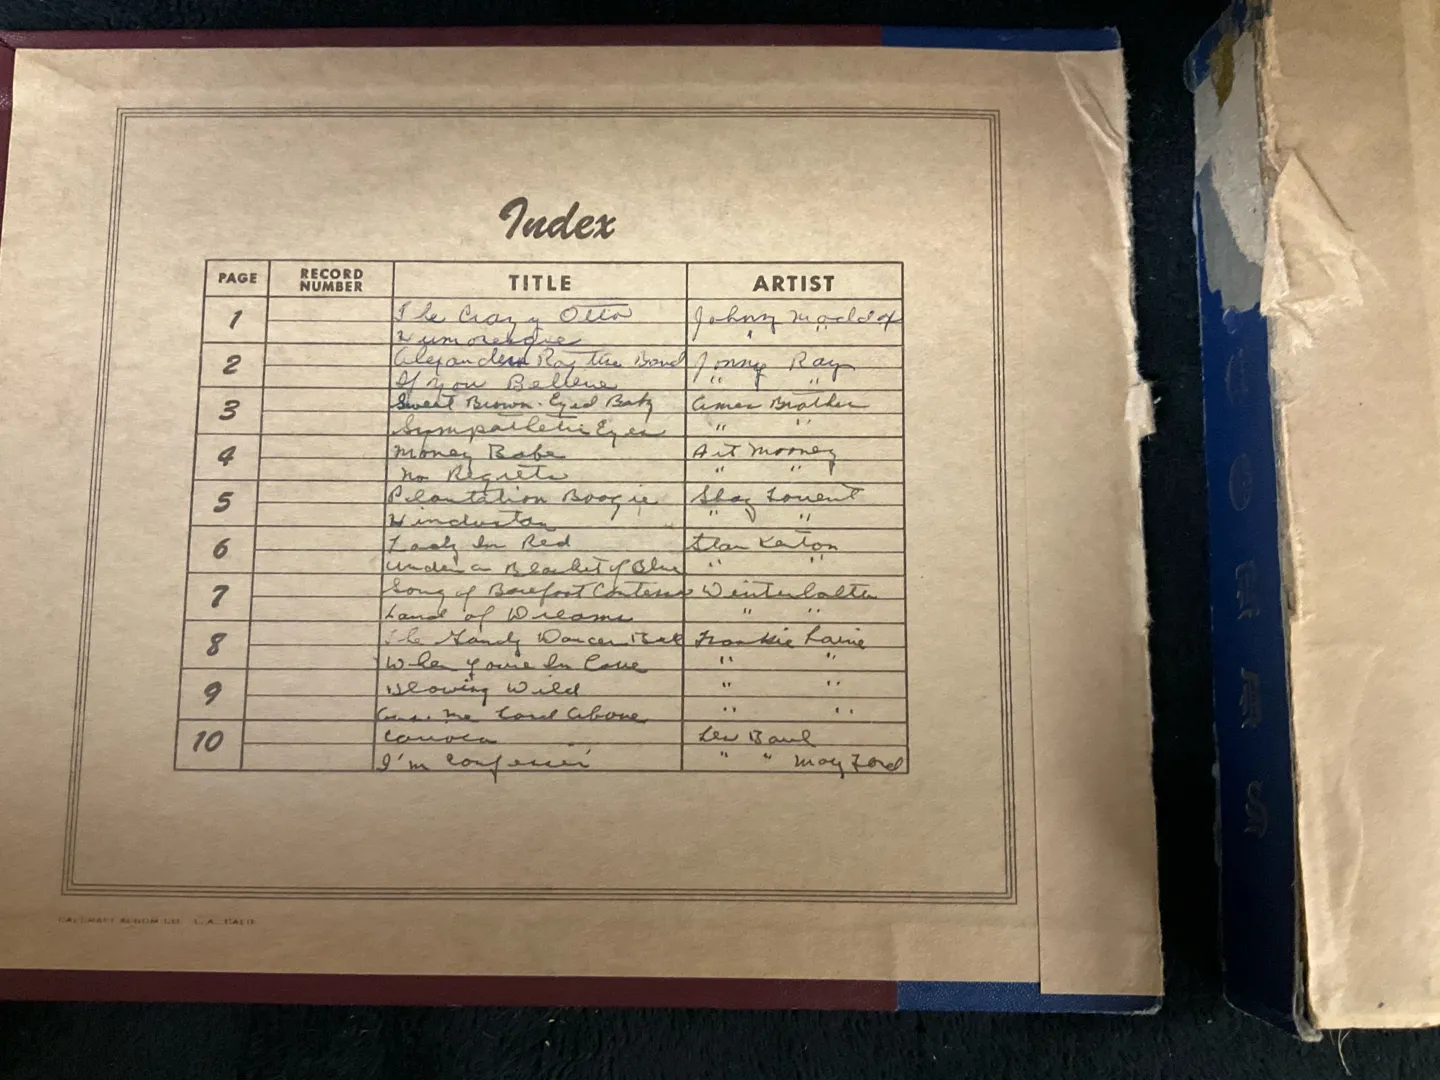 Index
PAGE RECORD NUMBER TITLE ARTIST
1 The Crazy Otto Johnny Maddox
Humoresque " "
2 Alexanders Rag time Band Jonny Ray
If You Believe " "
3 Sweet Brown-Eyed Baby Ames Brother
Sympathetic Eyes " "
4 Money Babe Art Mooney
No Regrets " "
5 Plantation Boogie
Hindustan " "
6 Lady In Red Stan Kenton
Under a Blanket of Blue " "
7 Song of Barefoot Contessa Winterhalter
Land of Dreams " "
8 The Gandy Dancer Ball Frankie Laine
When You're In Love " "
9 Blowing Wild " "
Lord Above " "
10 Carioca Les Baul
I'm Confessin' " " May Ford
L.A. CALIF.